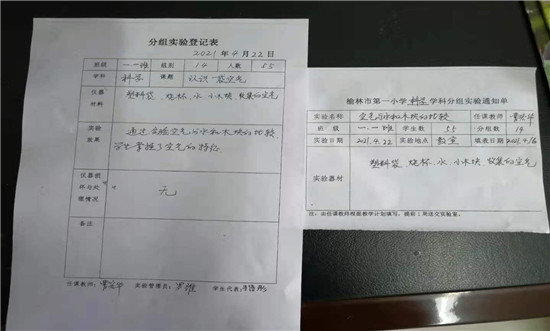 分组实验登记表
2021 年 4 月 22 日
班级 一一班 组别 14 人数 55
学科 科学 课题 认识一袋空气
仪器材料 塑料袋、烧杯、水、小木块 收集的空气
实验效果 通过实验空气与水和木块的比较
学生掌握了空气的特征
仪器损坏与处理情况 无
备注
任课教师: 实验管理员: 学生代表:
榆林市第一小学 科学 学科分组实验通知单
实验名称 空气与水和木块的比较 任课教师
班 级 一一班 学生数 55 分组数 14
实验日期 2021.4.22 实验地点 教室 填表日期 2021.4/16
实验器材 塑料袋、烧杯、水、小木块 收集的空气
注:由任课教师根据教学计划填写,提前1周送交实验室。